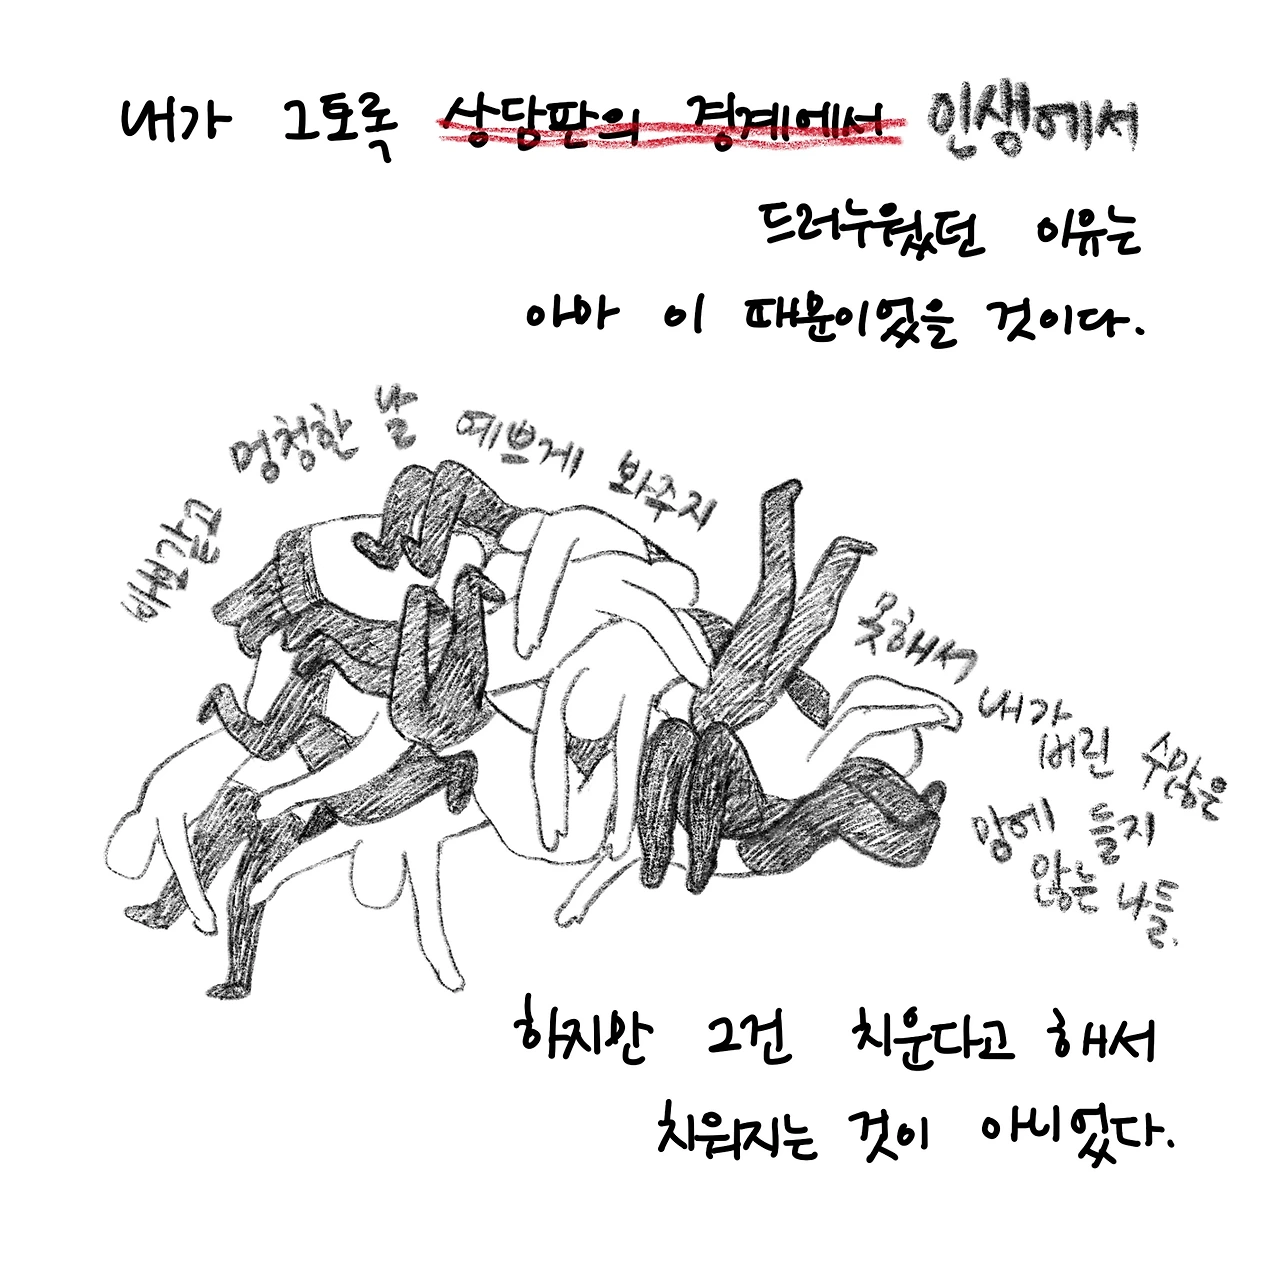 내가 그토록 상담판의 경계에서 인생에서
드러누웠던 이유는
아마 이 때문이었을 것이다.
빨갛고 멍청한 날 예쁘게 봐주지 못해서
내가 버린 수많은
맘에 들지
않는 나들.
하지만 그건 치운다고 해서
치워지는 것이 아니었다.